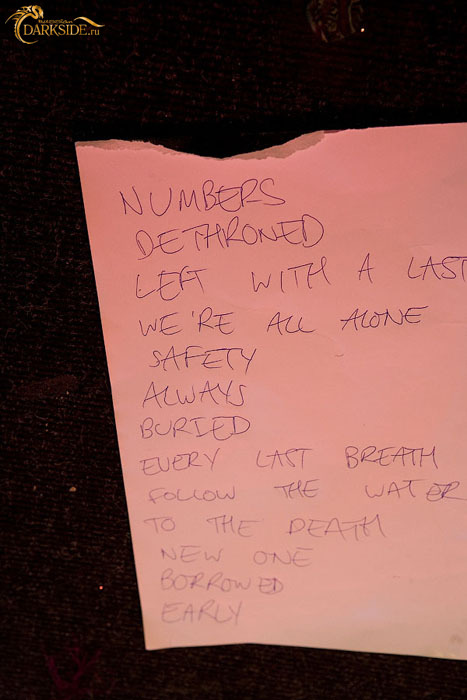 DARKSIDE.ru
NUMBERS
DETHRONED
LEFT WITH A LAST
WE'RE ALL ALONE
SAFETY
ALWAYS
BURIED
EVERY LAST BREATH
FOLLOW THE WATER
TO THE DEATH
NEW ONE
BORROWED
EARLY